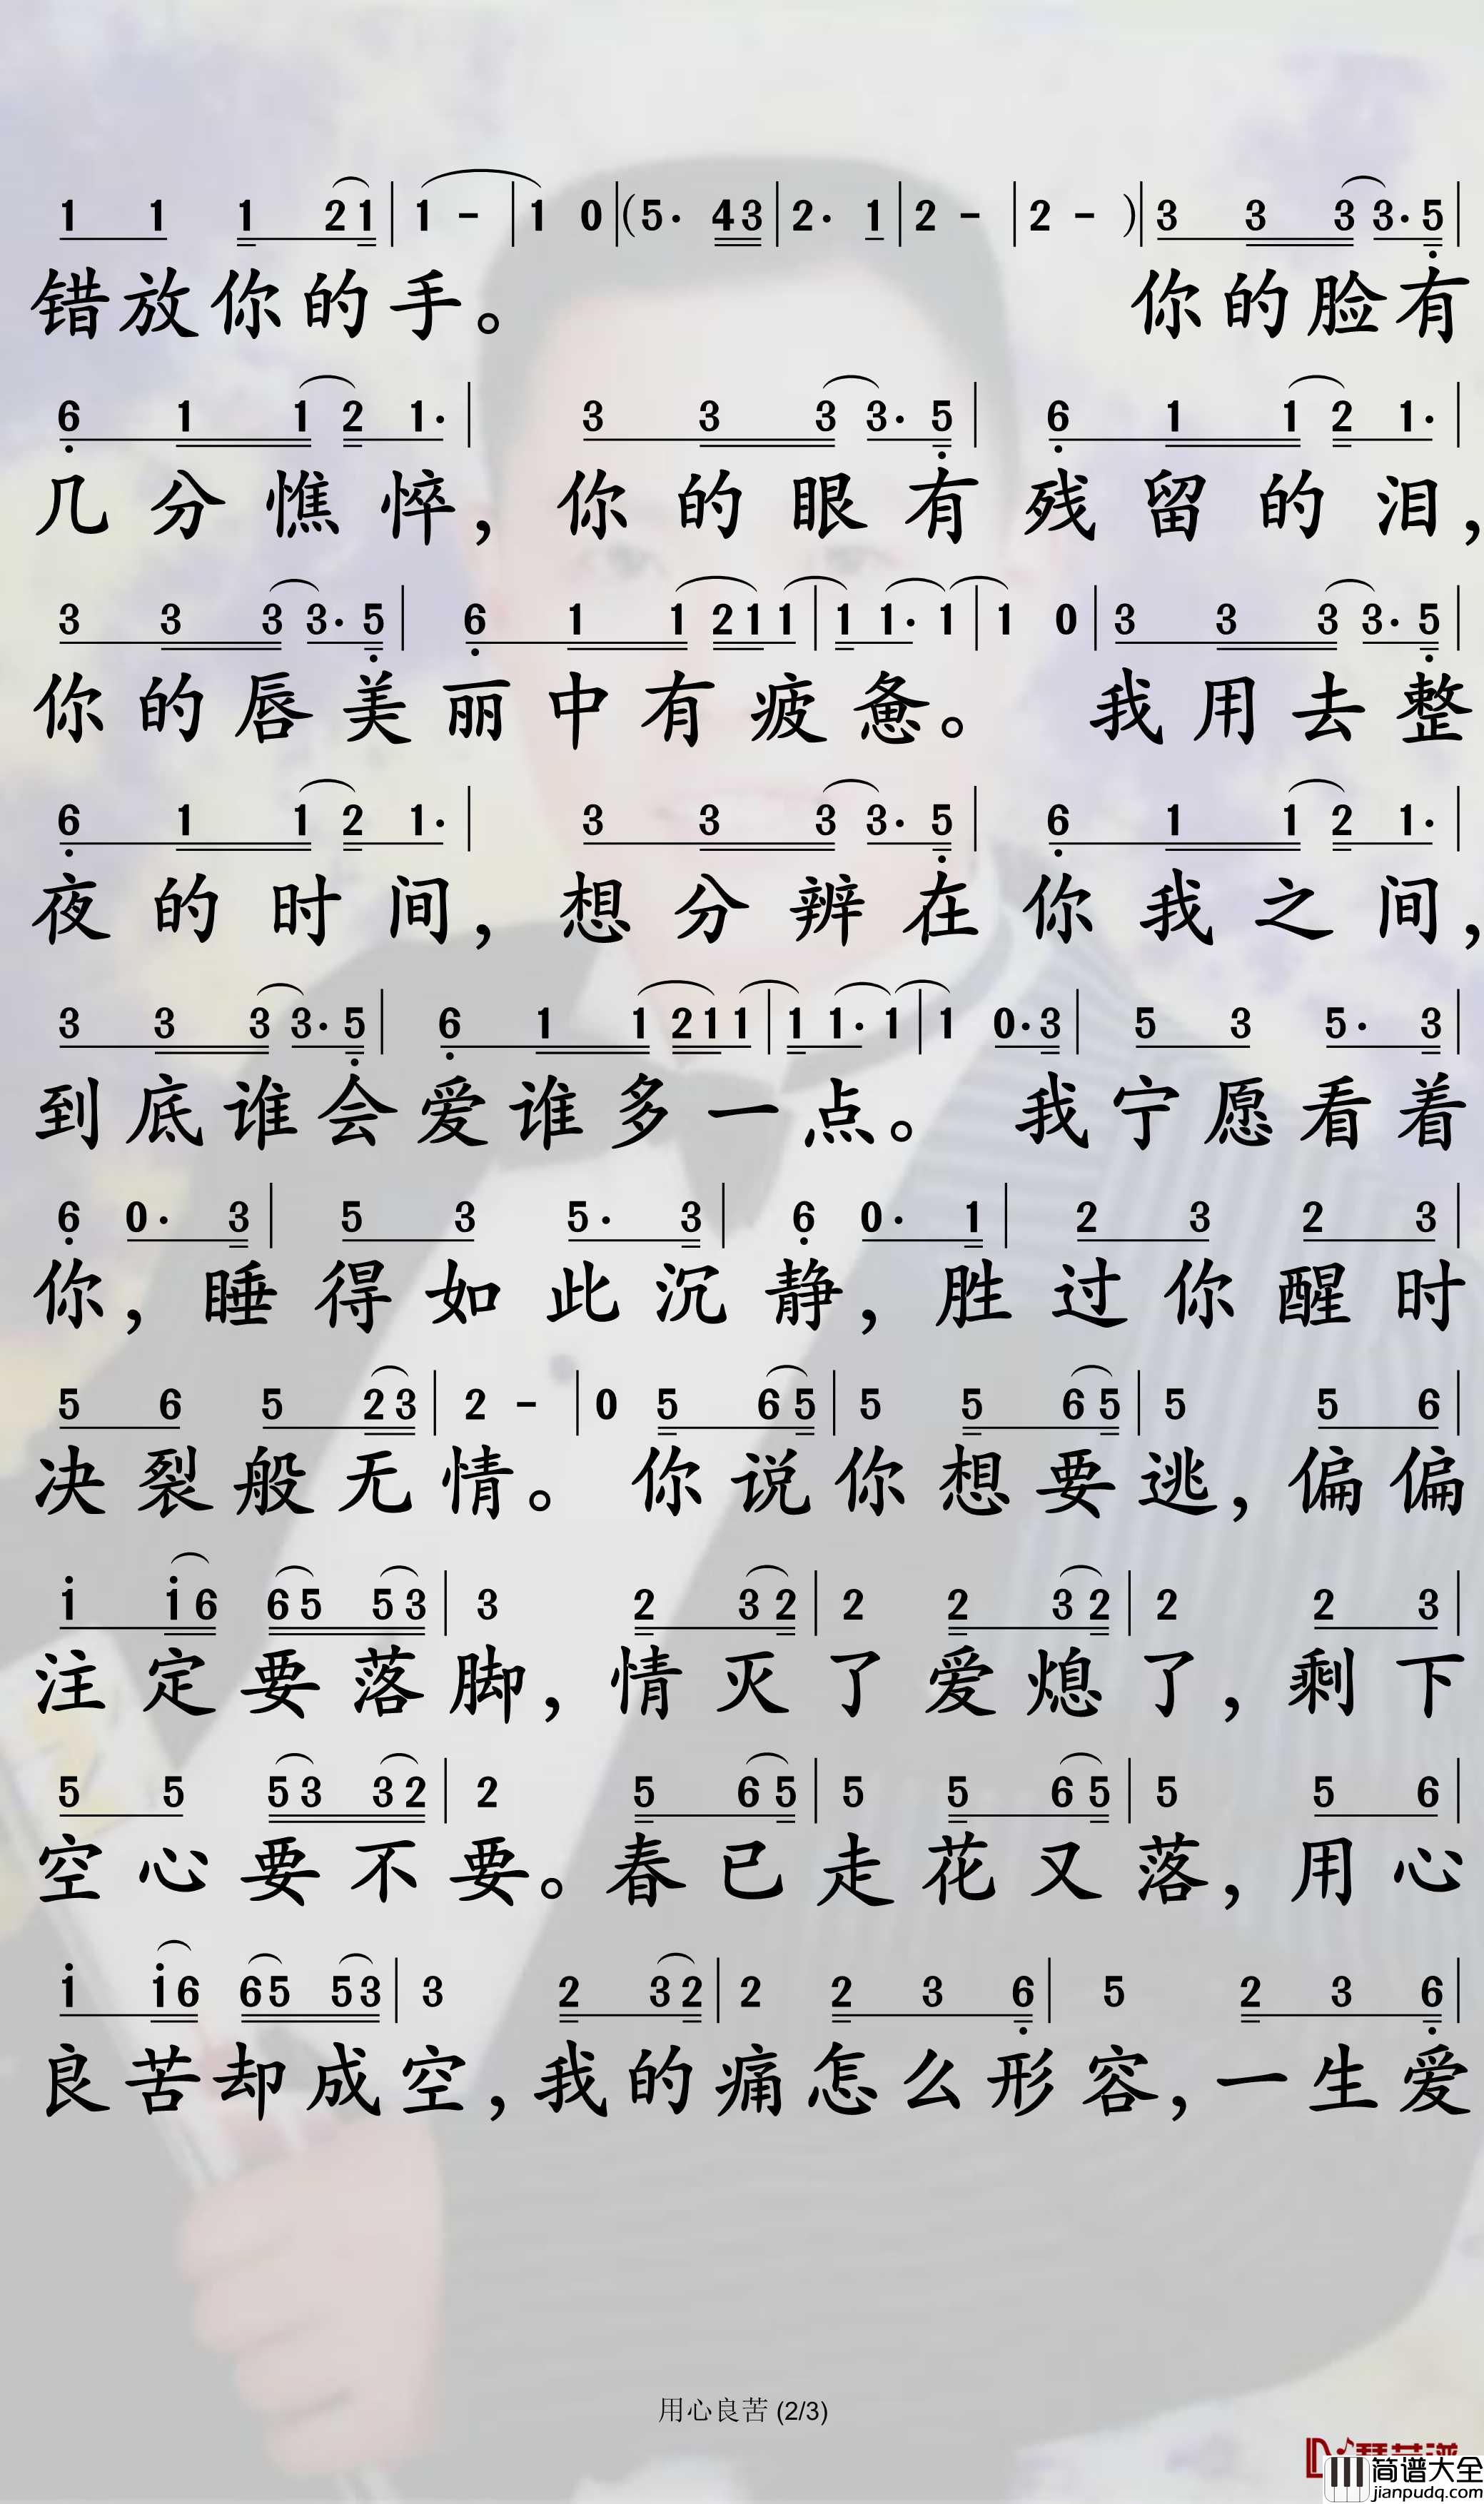 1 1 1 2 1 | 1 - | 1 0 | (5· 4 3 | 2· 1 | 2 - | 2 - ) | 3 3 3 3· 5 |
错放你的手。 你的脸有
6 1 1 2 1· | 3 3 3 3· 5 | 6 1 1 2 1· |
几分憔悴，你的眼有残留的泪，
3 3 3 3· 5 | 6 1 1 2 1 1 | 1 1· 1 | 1 0 | 3 3 3 3· 5 |
你的唇美丽中有疲惫。 我用去整
6 1 1 2 1· | 3 3 3 3· 5 | 6 1 1 2 1· |
夜的时间，想分辨在你我之间，
3 3 3 3· 5 | 6 1 1 2 1 1 | 1 1· 1 | 1 0· 3 | 5 3 5· 3 |
到底谁会爱谁多一点。 我宁愿看着
6 0· 3 | 5 3 5· 3 | 6 0· 1 | 2 3 2 3 |
你，睡得如此沉静，胜过你醒时
5 6 5 2 3 | 2 - | 0 5 6 5 | 5 5 6 5 | 5 5 6 |
决裂般无情。你说你想要逃，偏偏
1 1 6 6 5 5 3 | 3 2 3 2 | 2 2 3 2 | 2 2 3 |
注定要落脚，情灭了爱熄了，剩下
5 5 5 3 3 2 | 2 5 6 5 | 5 5 6 5 | 5 5 6 |
空心要不要。春已走花又落，用心
1 1 6 6 5 5 3 | 3 2 3 2 | 2 2 3 6 | 5 2 3 6 |
良苦却成空，我的痛怎么形容，一生爱
用心良苦 (2/3)
简谱大全
jianpudq.com